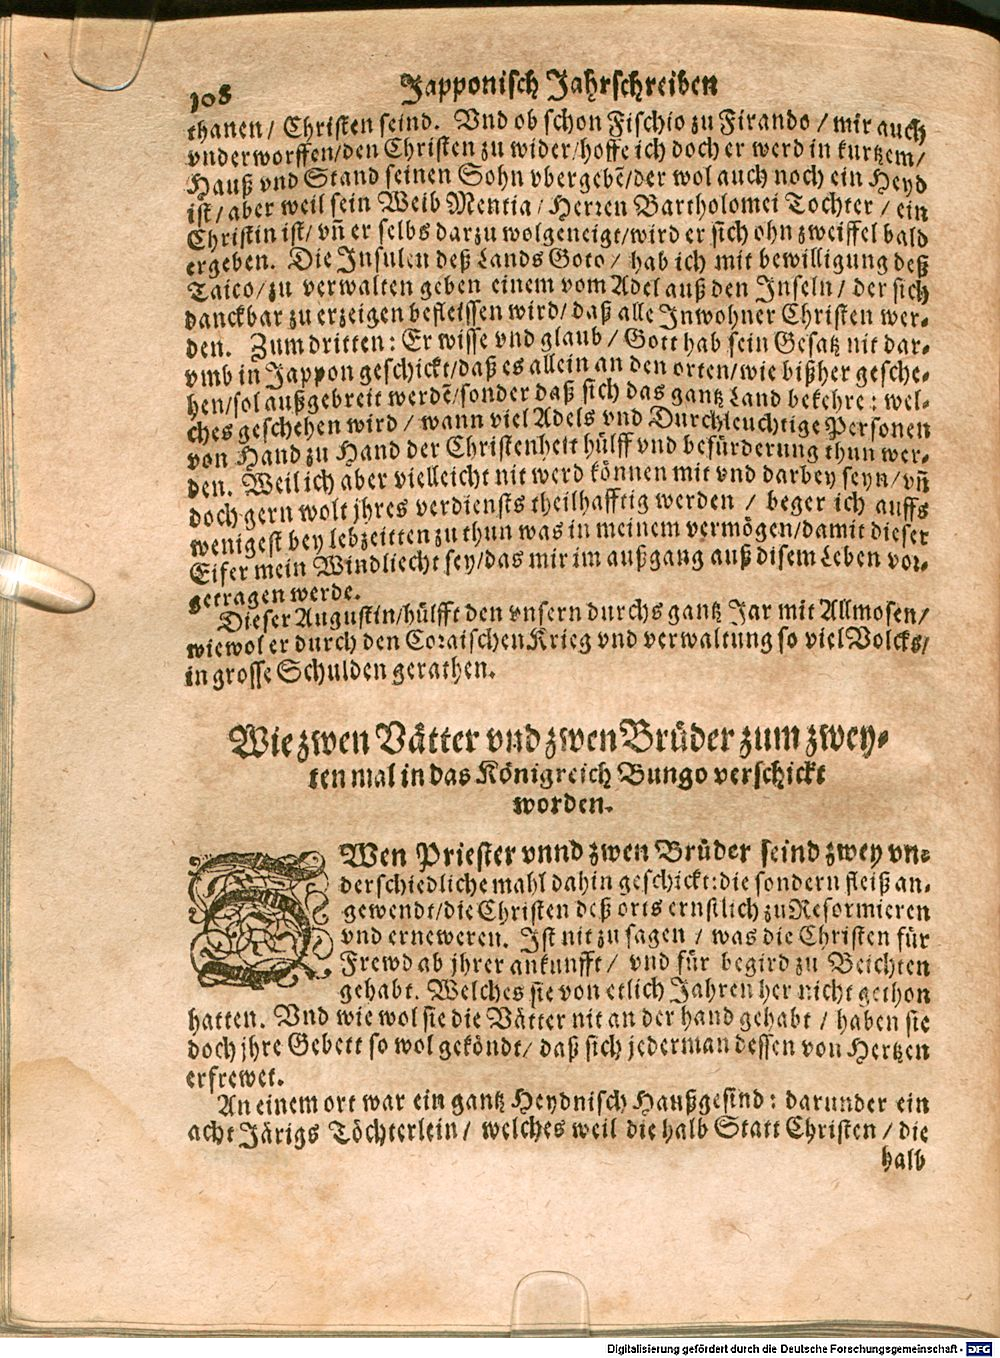 108 Japponisch Jahrschreiben
thanen/ Christen seind. Vnd ob schon Fischio zu Firando / mir auch
vnderworffen/den Christen zu wider/hoffe ich doch er werd in kurtzem/
Hauß vnd Stand seinen Sohn vbergebē/der wol auch noch ein Heyd
ist/aber weil sein Weib Mentia/ Herren Bartholomei Tochter / ein
Christin ist/ vñ er selbs darzu wolgeneigt/wird er sich ohn zweiffel bald
ergeben. Die Insulen deß Lands Goto/ hab ich mit bewilligung deß
Taico/zu verwalten geben einem vom Adel auß den Inseln/ der sich
danckbar zu erzeigen befleissen wird/ daß alle Inwohner Christen wer-
den. Zum dritten: Er wisse vnd glaub/ Gott hab sein Gesatz nit dar-
vmb in Jappon geschickt/daß es allein an den orten/wie bißher gesche-
hen/sol außgebreit werdē/sonder daß sich das gantz Land bekehre: wel-
ches geschehen wird/ wann viel Adels vnd Durchleuchtige Personen
von Hand zu Hand der Christenheit hülff vnd befürderung thun wer-
den. Weil ich aber vielleicht nit werd können mit vnd darbey seyn/vñ
doch gern wolt jhres verdiensts theilhafftig werden / beger ich auffs
wenigest bey lebzeitten zu thun was in meinem vermögen/damit dieser
Eifer mein Windliecht sey/das mir im außgang auß disem Leben vor-
getragen werde.
Dieser Augustin/hülfft den vnsern durchs gantz Jar mit Allmosen/
wiewol er durch den Coraischen Krieg vnd verwaltung so viel Volcks/
in grosse Schulden gerathen.
Wie zwen Vätter vnd zwen Brüder zum zwey-
ten mal in das Königreich Bungo verschickt
worden.
ZWen Priester vnnd zwen Brüder seind zwey vn-
derschiedliche mahl dahin geschickt: die sondern fleiß an-
gewendt/die Christen deß orts ernstlich zu Reformieren
vnd erneweren. Ist nit zu sagen / was die Christen für
Frewd ab jhrer ankunfft/ vnd für begird zu Beichten
gehabt. Welches sie von etlich Jahren her nicht gethon
hatten. Vnd wie wol sie die Vätter nit an der hand gehabt / haben sie
doch jhre Gebett so wol geköndt/ daß sich jederman dessen von Hertzen
erfrewet.
An einem ort war ein gantz Heydnisch Haußgesind: darunder ein
acht Järigs Töchterlein/ welches weil die halb Statt Christen / die
halb
Digitalisierung gefördert durch die Deutsche Forschungsgemeinschaft - DFG